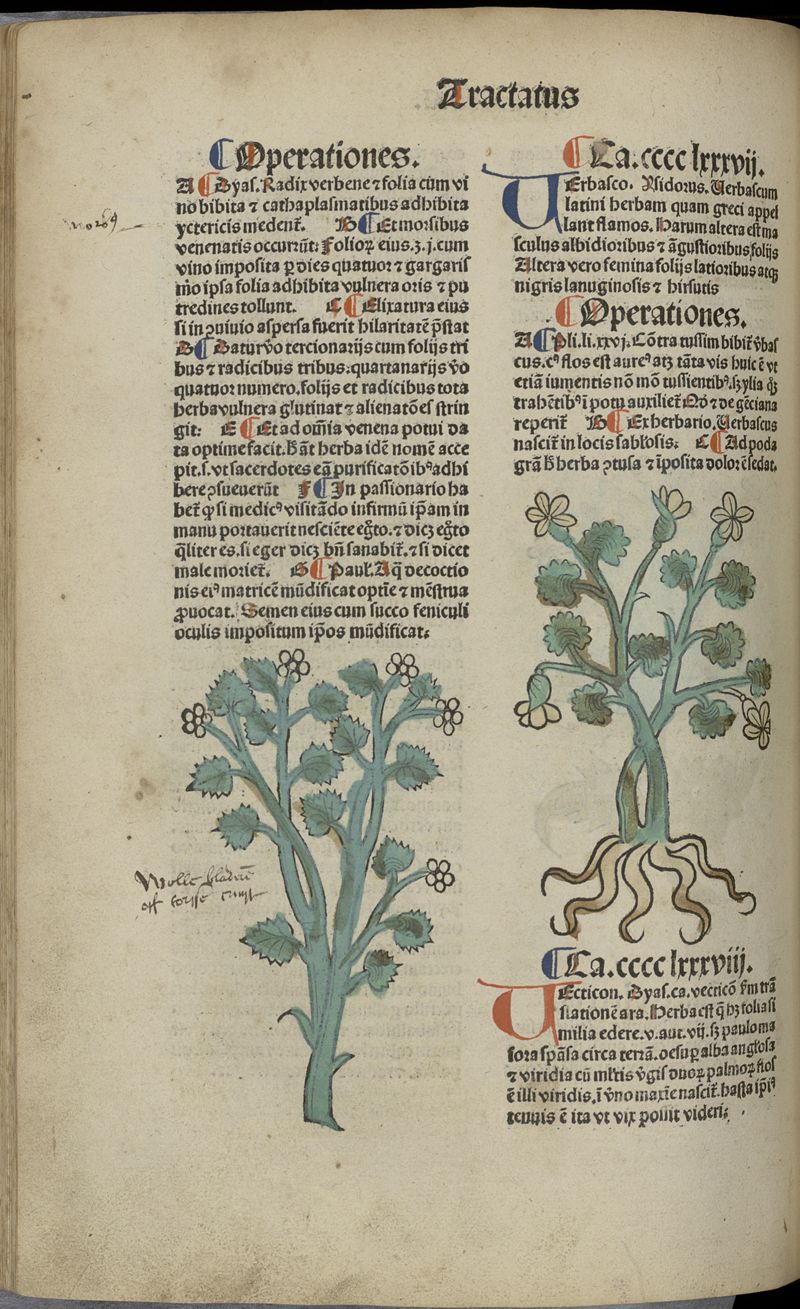 Tractatus
¶ Operationes.
A ¶ Dyas. Radix verbene ⁊ folia cum vi
no bibita ⁊ cathaplasmatibus adhibita
yctericis medent᷑. B ¶ Et morsibus
venenatis occurrūt: Folioꝝ eius.ʒ.j.cum
vino imposita ꝑ dies quatuor ⁊ gargaris
mo ipsa folia adhibita vulnera oris ⁊ pu
tredines tollunt. C ¶ Elixatura eius
si in ꝯuiuio aspersa fuerit hilaritatē p̄stat
D ¶ Datur v̄o tercionarijs cum folijs tri
bus ⁊ radicibus tribus: quartanarijs v̄o
quatuor numero. folijs et radicibus tota
herba vulnera glutinat ⁊ alienatōes strin
git: E ¶ Et ad om̄ia venena potui da
ta optime facit. h̄ āt herba idē nomē acce
pit.s.vt sacerdotes eā purificatōibꝰ adhi
bere ꝯsueuerūt F ¶ In passionario ha
bet᷑ ꝙ si medicꝰ visitādo infirmū ip̄am in
manu portauerit nesciēte eg̃to. ⁊ dicꝫ eg̃to
q̄liter es. si eger dicꝫ bn̄ sanabit᷑. ⁊ si dicet
male moriet᷑. G ¶ Paul. Aq̄ decoctio
nis eiꝰ matricē mūdificat optīe ⁊ mēstrua
ꝓuocat. Semen eius cum succo feniculi
oculis impositum ip̄os mūdificat:
¶ Ca.cccc lxxxvij.
VErbasco. Ysidorus. Verbascum
latini herbam quam greci appel
lant flamos. Harum altera est ma
sculus albidioribus ⁊ āgustioribus folijs
Altera vero femina folijs latioribus atqꝫ
nigris lanuginosis ⁊ hirsutis
¶ Operationes.
A ¶ Pli.li.xxvj. Cōtra tussim bibit᷑ v̄bas
cus. cꝰ flos est aureꝰ atꝫ tāta vis huic ē vt
etiā iumentis nō mō tussientibꝰ. sꝫ ylia q̄ꝫ
trahētibꝰ ī potu auxiliet᷑ ⁊ de gēciana
reperit᷑ B ¶ Ex herbario. Verbascus
nascit᷑ in locis sablosis: C ¶ Ad poda
grā h̄ herba ꝯtusa ⁊ īposita dolorē sedat.
Wolle
¶ Ca.cccc lxxxviij.
VEcticon. Dyas.ca.vecticō s̄m trā
slationē ara. Herba est q̄ hꝫ folia si
milia edere.v.aut.vij. sꝫ paulo ma
iora spāsa circa terrā. desuꝑ alba angłosa
⁊ viridia cū młtis v̄gis duoꝝ palmoꝝ flos
ē illi viridis. ī v̄no maxīe nascit᷑. hasta ip̄iꝰ
tenuis ē ita vt vix ꝑ videri: